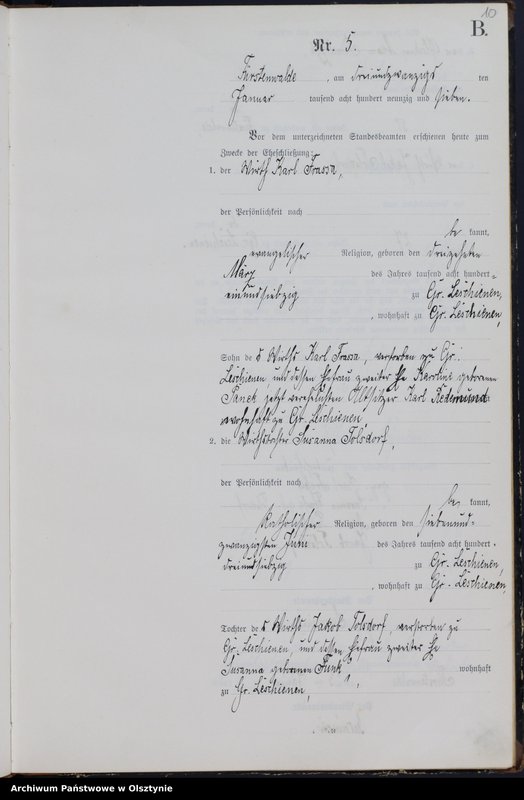 10
B.
Nr. 5.
Fürstenwalde, am dreiundzwanzigs ten
Januar tausend acht hundert neunzig und sieben.
Vor dem unterzeichneten Standesbeamten erschienen heute zum
Zwecke der Eheschließung:
1. der Wirth Karl Frassa,
der Persönlichkeit nach
be kannt,
evangelischer Religion, geboren den dreizehnten
März des Jahres tausend acht hundert
einundsiebzig zu Gr. Leschienen,
, wohnhaft zu Gr. Leschienen,
Sohn des Wirths Karl Frassa, verstorben zu Gr.
Leschienen, und dessen Ehefrau zweiter Ehe Karoline geborenen
jetzt verehelichten Altsitzer Karl
wohnhaft zu Gr. Leschienen,
2. die Wirthstochter Susanna Tolsdorf,
der Persönlichkeit nach
be kannt,
katholischer Religion, geboren den siebenund-
zwanzigsten Juni des Jahres tausend acht hundert
dreiundsiebzig zu Gr. Leschienen,
, wohnhaft zu Gr. Leschienen,
Tochter des Wirths Jakob Tolsdorf, verstorben zu
Gr. Leschienen, und dessen Ehefrau zweiter Ehe
Susanna geborenen Funk, wohnhaft
zu Gr. Leschienen,
Archiwum Państwowe w Olsztynie